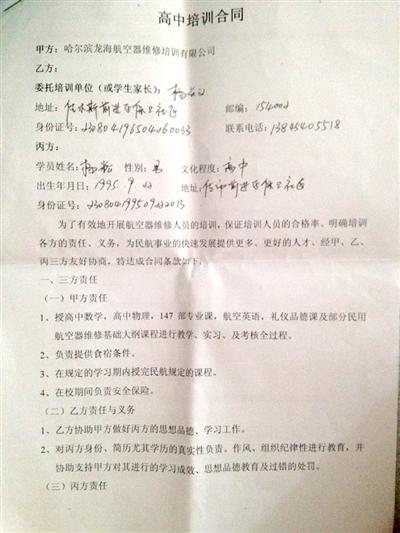 高中培训合同
甲方：哈尔滨龙海航空器维修培训有限公司
乙方：
委托培训单位（或学生家长）：杨
地址：佳木斯前进区保卫社区 邮编：154002
身份证号：230804196504060033 联系电话：13845405518
丙方：
学员姓名：杨 性别：男 文化程度：高中
出生年月日：1995.9.22 地址：佳市前进区保卫社区
身份证号：230804199509220013
为了有效地开展航空器维修人员的培训，保证培训人员的合格率、明确培训
各方的责任、义务，为民航事业的快速发展提供更多、更好的人才、经甲、乙、
丙三方友好协商，特达成合同条款如下：
一、三方责任
（一）甲方责任
1、授高中数学，高中物理，147 部专业课，航空英语，礼仪品德课及部分民用
航空器维修基础大纲课程进行教学、实习、及考核全过程。
2、负责提供食宿条件。
3、在规定的学习期内授完民航规定的课程。
4、在校期间负责安全保险。
（二）乙方责任与义务
1、乙方协助甲方做好丙方的思想品德、学习工作。
2、对丙方身份、简历尤其学历的真实性负责、作风、组织纪律性进行教育，并
协助支持甲方对其进行的学习成效、思想品德教育及过错的处罚。
（三）丙方责任